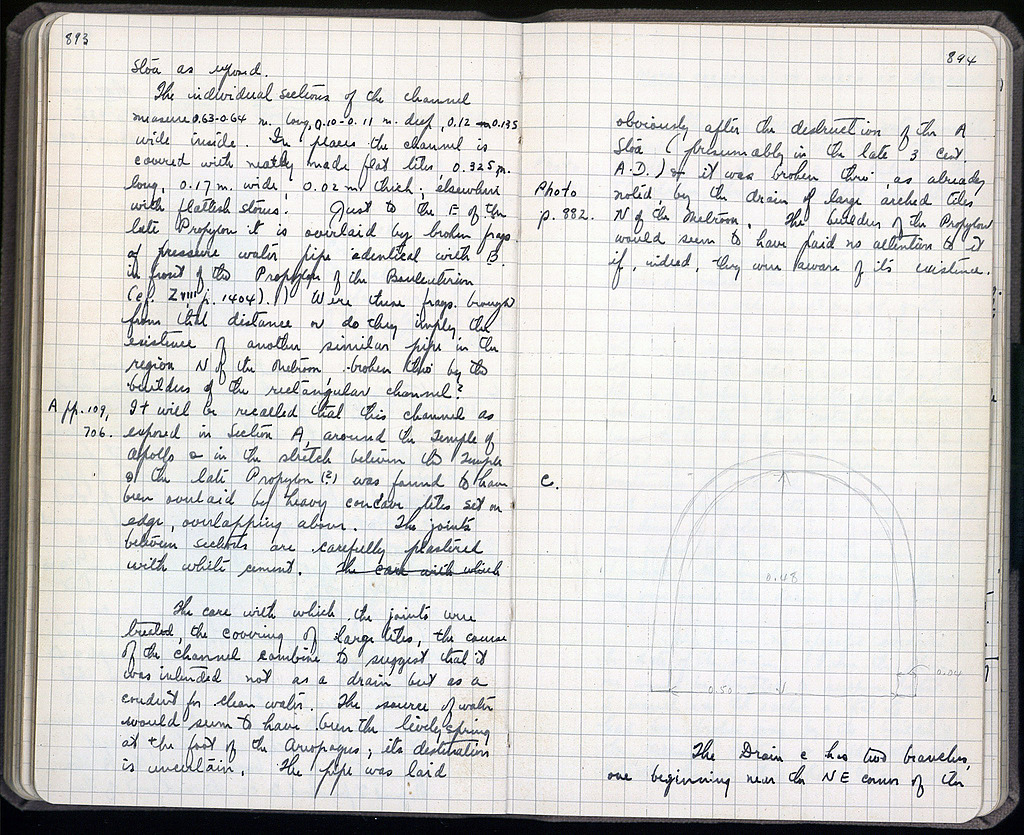 893
Stoa as exposed.
The individual sections of the channel
measure 0.63-0.64 m. long, 0.10-0.11 m. deep, 0.12-0.135
wide inside. In places the channel is
covered with neatly made flat tiles 0.325 m.
long, 0.17 m. wide 0.02 m thick; elsewhere
with flattish stones. Just to the E of the
late Propylon it is overlaid by broken frags.
of pressure water pipe identical with B.
in front of the Propylon of the Bouleuterion
(cf. Z VIII p. 1404). Were these frags. brought
from that distance or do they imply the
existence of another similar pipe in the
region N of the Metroon broken thro' by the
builders of the rectangular channel?
A pp. 109,
706.
It will be recalled that this channel as
exposed in Section A, around the Temple of
Apollo & in the stretch between the Temple
& the late Propylon (?) was found to have
been overlaid by heavy concave tiles set on
edge, overlapping above. The joints
between sections are carefully plastered
with white cement. The care with which
The care with which the joints were
treated, the covering of large tiles, the course
of the channel combine to suggest that it
was intended not as a drain but as a
conduit for clean water. The source of water
would seem to have been the lively spring
at the foot of the Areopagus; its destination
is uncertain. The pipe was laid
894
obviously after the destruction of the A
Stoa (presumably in the late 3 cent.
A.D.) & it was broken thro', as already
Photo
p. 882.
noted, by the drain of large arched tiles
N of the Metroon. The builders of the Propylon
would seem to have paid no attention to it
if, indeed, they were aware of its existence.
c.
0.48
0.50
0.04
The Drain c has two branches,
one beginning near the NE corner of the